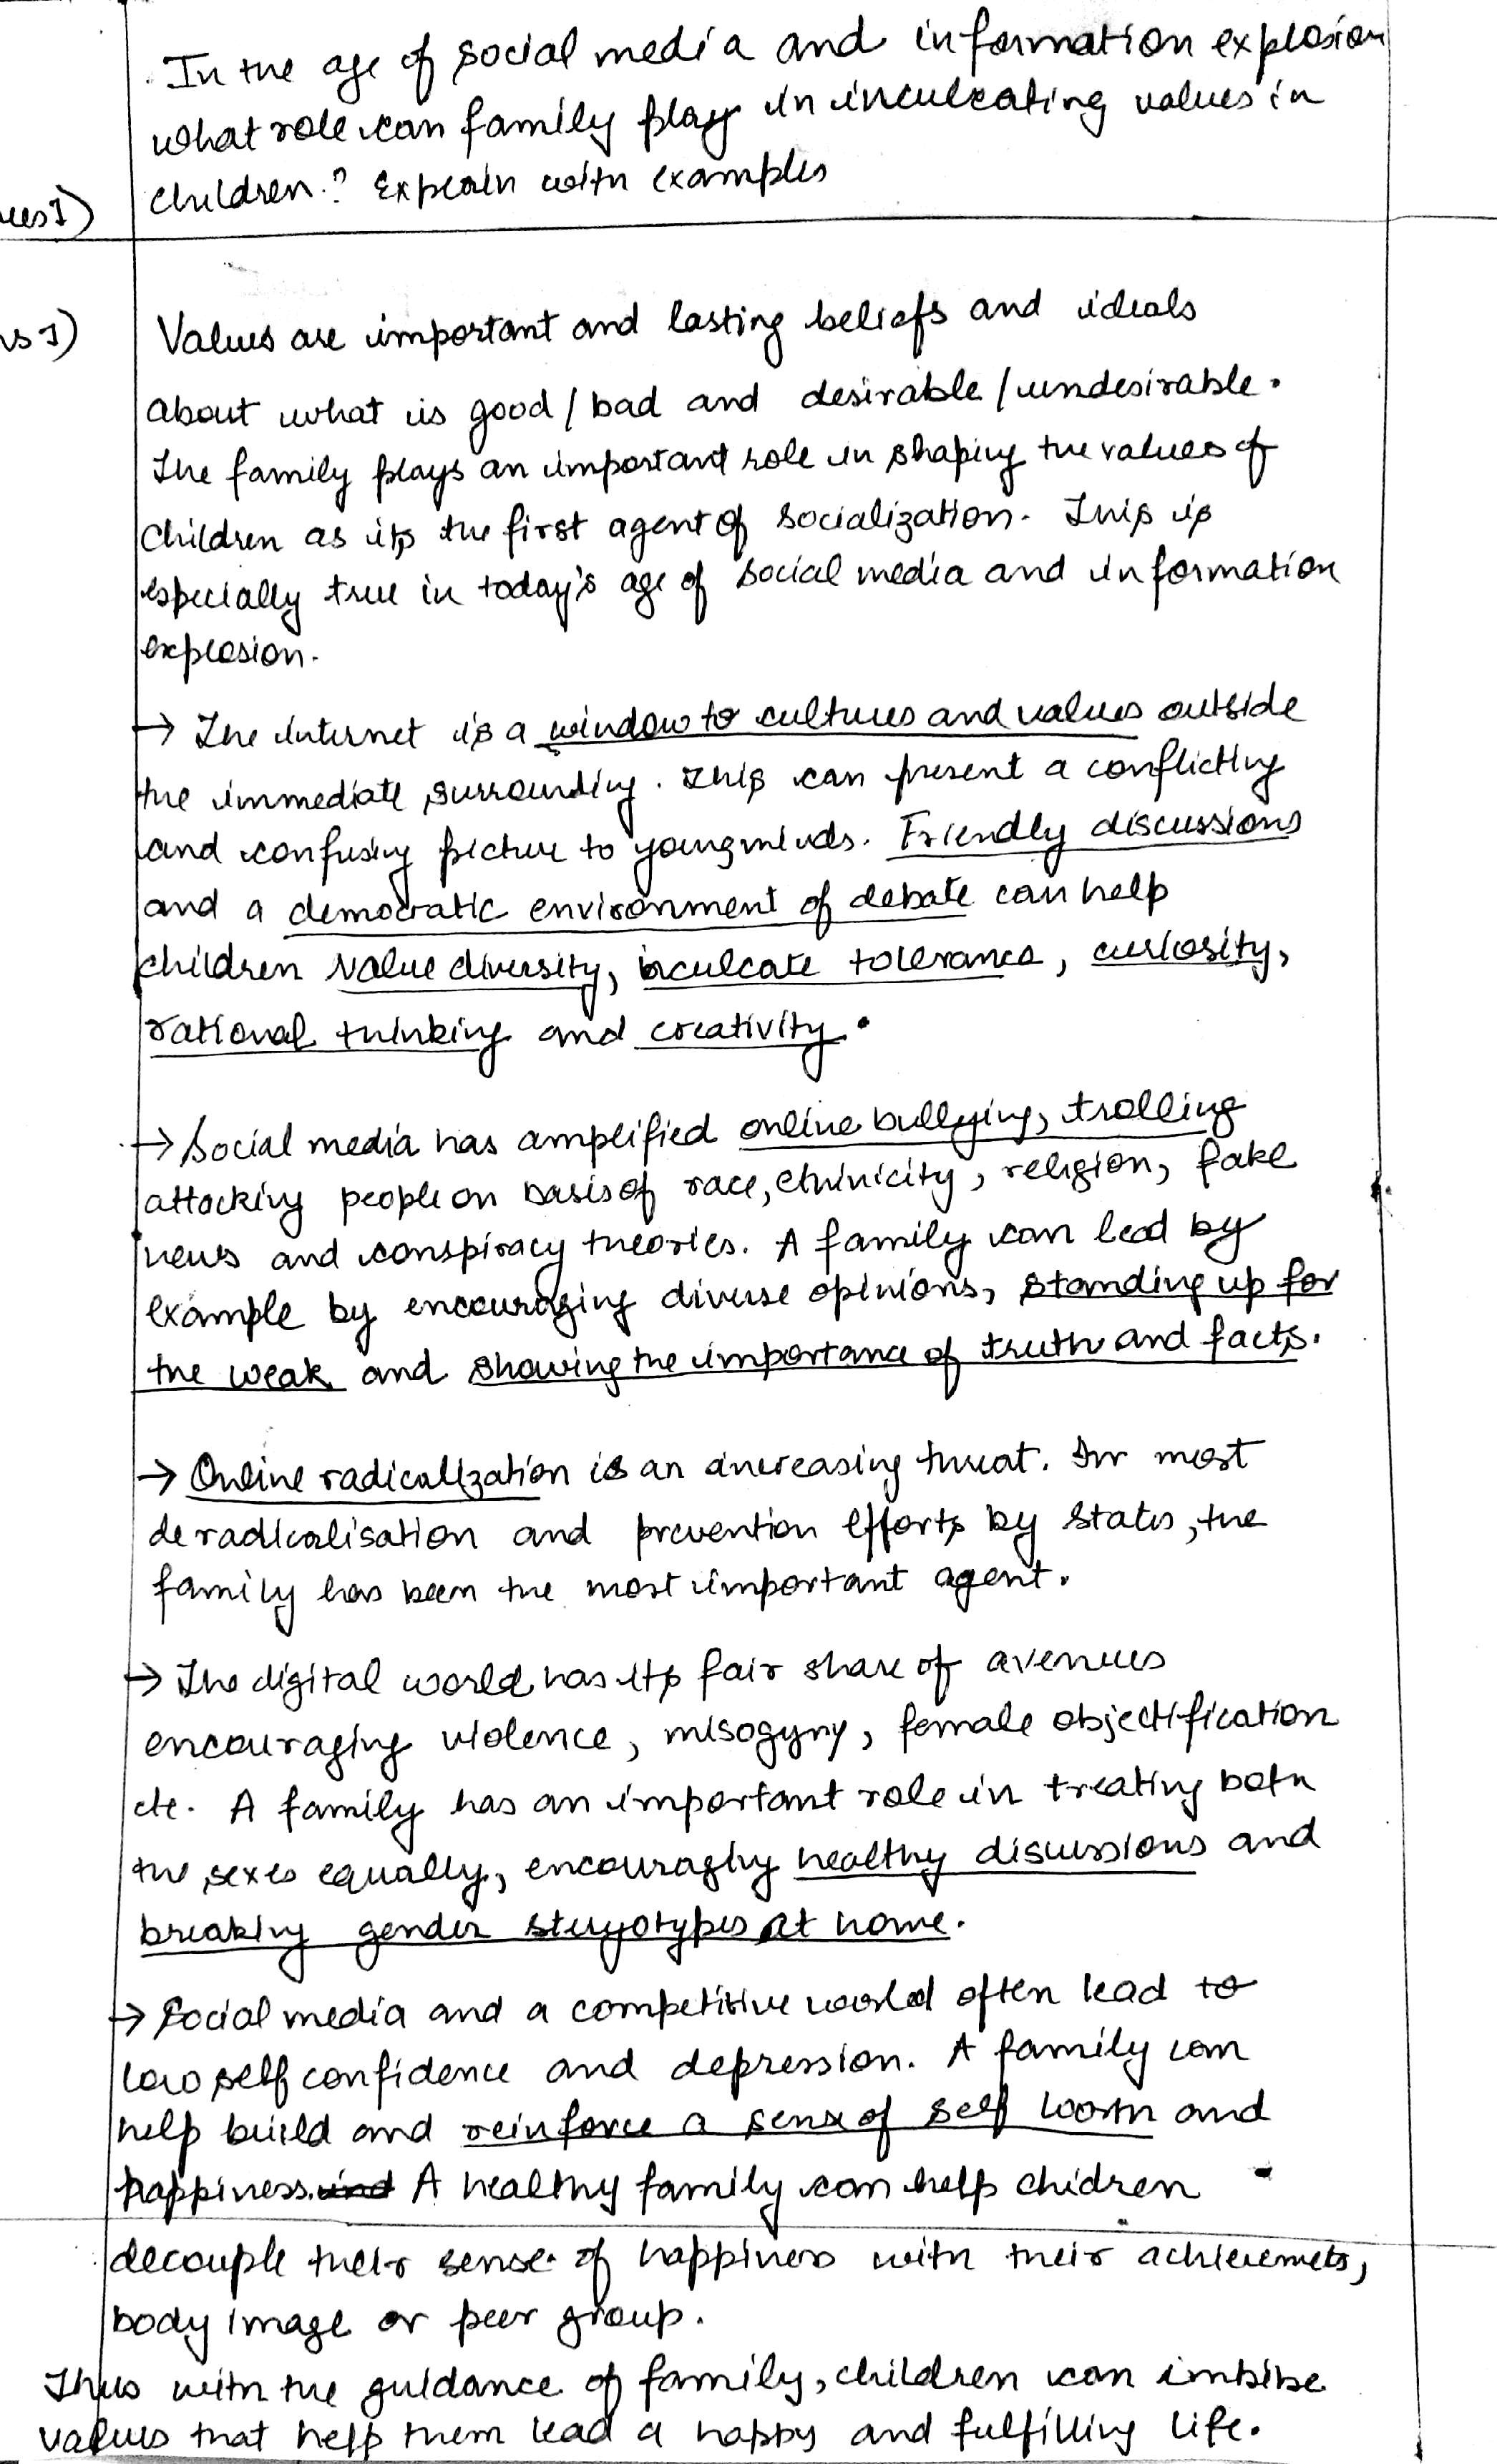 In the age of social media and information explosion
what role can family play in inculcating values in
children? Explain with examples
Values are important and lasting beliefs and ideals
about what is good/bad and desirable/undesirable.
The family plays an important role in shaping the values of
children as its the first agent of socialization. This is
especially true in today's age of social media and information
explosion.
→ The internet is a window to cultures and values outside
the immediate surrounding. This can present a conflicting
and confusing picture to young minds. Friendly discussions
and a democratic environment of debate can help
children value diversity, inculcate tolerance, curiosity,
rational thinking and creativity.
→ Social media has amplified online bullying, trolling
attacking people on basis of race, ethinicity, religion, fake
news and conspiracy theories. A family can lead by
example by encouraging diverse opinions, standing up for
the weak and showing the importance of truth and facts.
→ Online radicalization is an increasing threat. In most
deradicalisation and prevention efforts by states, the
family has been the most important agent.
→ The digital world has its fair share of avenues
encouraging violence, misogyny, female objectification
etc. A family has an important role in treating both
the sexes equally, encouraging healthy discussions and
breaking gender steryotypes at home.
→ Social media and a competitive world often lead to
low self confidence and depression. A family can
help build and reinforce a sense of self worth and
happiness. A healthy family can help chidren
decouple their sense of happiness with their achievemets,
body image or peer group.
Thus with the guidance of family, children can imbibe
values that help them lead a happy and fulfilling life.